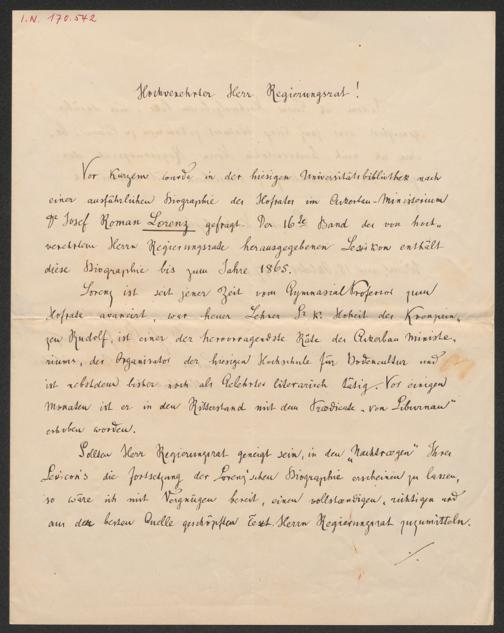 I.N. 170.542
Hochverehrter Herr Regierungsrat!
Vor Kurzem wurde in der hiesigen Universitätsbibliothek nach
einer ausführlichen Biographie des Hofrates im Ackerbau-Ministerium
Dr Josef Roman Lorenz gefragt. Der 16te Band des von hoch-
verehrtem Herrn Regierungsrate herausgegebenen Lexikon enthält
diese Biographie bis zum Jahre 1865.
Lorenz ist seit jener Zeit vom Gymnasial Professor zum
Hofrate avancirt, war heuer Lehrer Sr K. Hoheit des Kronprin-
zen Rudolf, ist einer der hervorragendste Räte des Ackerbau Ministe-
riums, der Organisator der hiesigen Hochschule für Bodencultur und
ist nebstdem bisher noch als Gelehrter literarisch tätig. Vor einigen
Monaten ist er in den Ritterstand mit dem Prædicate „von Liburnau"
erhoben worden.
Sollten Herr Regierungsrat geneigt sein, in den „Nachtrægen" Ihres
Lexicon's die Fortsetzung der Lorenz'schen Biographie erscheinen zu lassen,
so wäre ich mit Vergnügen bereit, einen vollstændigen, richtigen und
aus der besten Quelle geschöpften Text Herrn Regierungsrat zuzumitteln.
./.